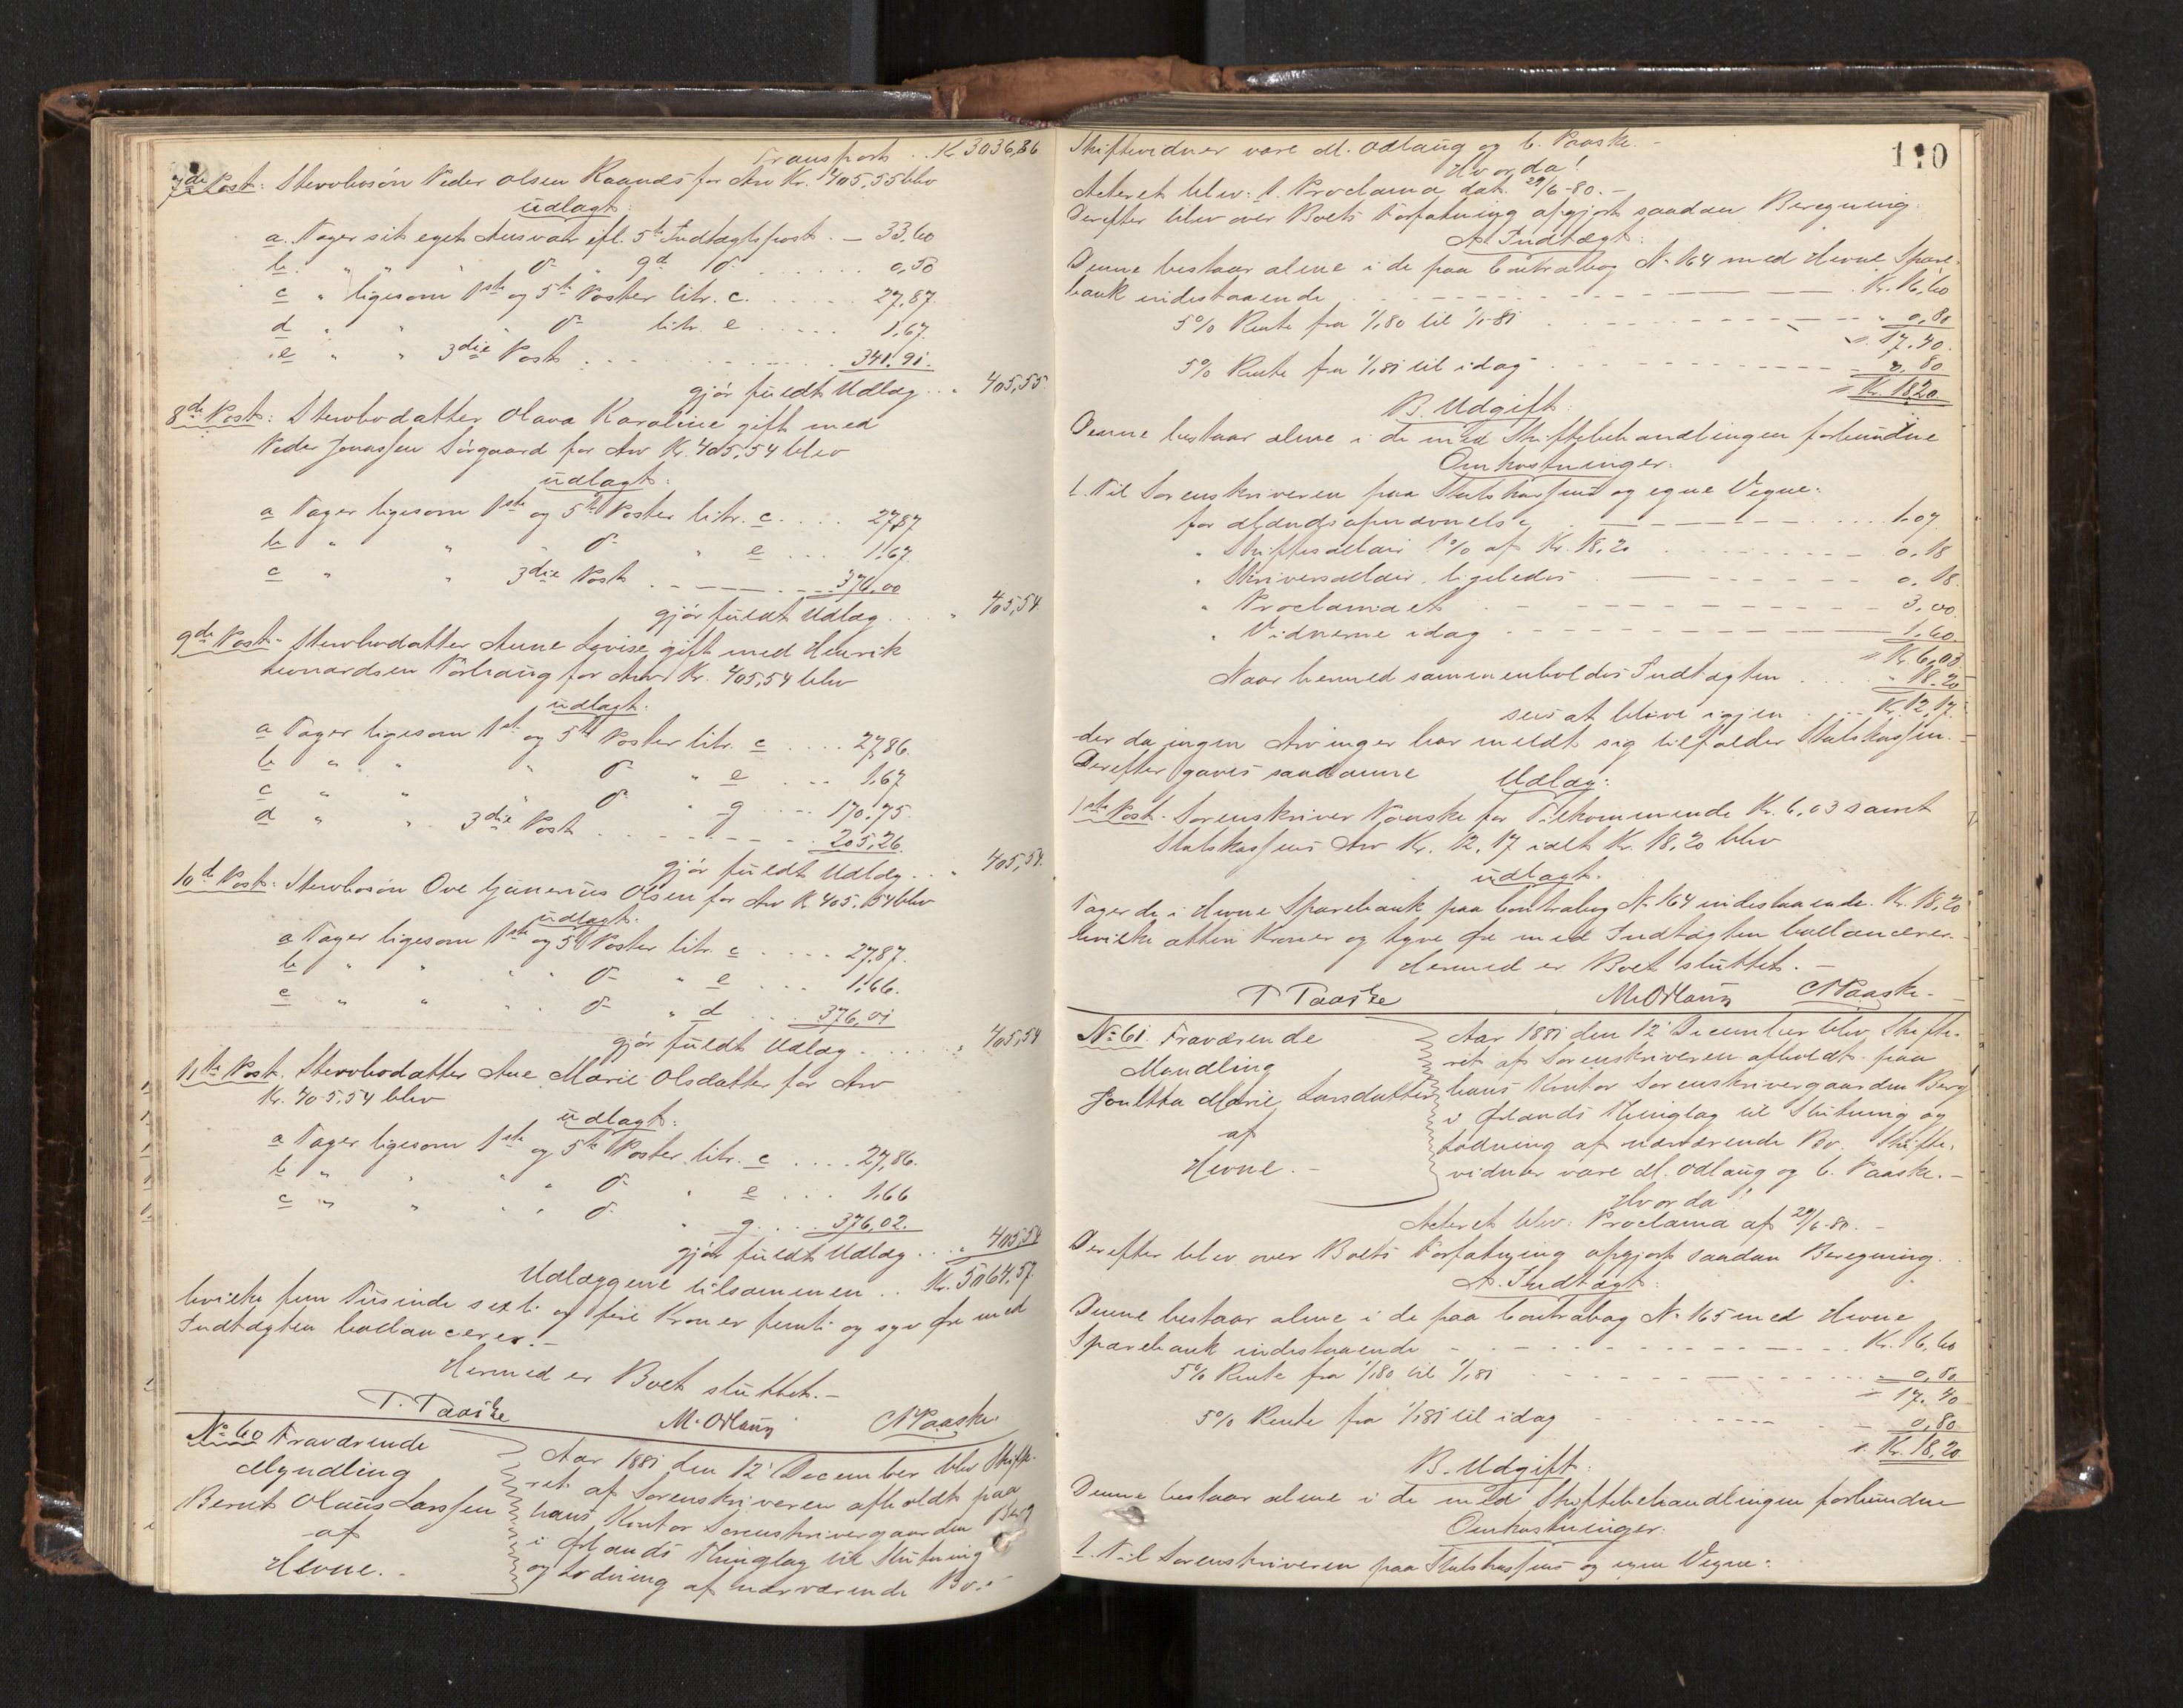 Transport . . Kr. 3036,86
7de Post: Stervbosøn Peder Olsen Raanes for Arv Kr. 405,55 blev
udlagt:
a. Tager sit eget Ansvar ifl. 5te Indtægtspost . — 33,60
b. " " " do 9de do . . . . . . 0,50
c " ligesom 1ste og 5te Poster litr. c. . . . . . 27,87
d " " " do litr. e . . . . . 1,67
e " " 3die Post . . . . . . 341,91.
gjør fuldt Udlæg . . . 405,55
8de Post: Stervbodatter Olava Karoline gift med
Peder Jonassen Sørgaard for Arv Kr. 405,54 blev
udlagt:
a Tager ligesom 1ste og 5te Poster litr. c. . . . 27,87
b " " " do " e . . . 1,67
c " " 3die Post . . . . . 376,00
gjør fuldt Udlæg . . . " 405,54
9de Post: Stervbodatter Anne Lovise gift med Henrik
Leonardsen for Arv Kr. 405,54 blev
udlagt:
a Tager ligesom 1ste og 5te Poster litr. c . . . . 27,86.
b " " " do " e . . . 1,67
c " " " do " g . . . 170,75.
d " " 3die Post . . . . . . 205,26.
gjør fuldt Udlæg . . " 405,54.
10de Post: Stervbosøn Ove Gunerius Olsen for Arv Kr. 405,54 blev
udlagt.
a Tager ligesom 1ste og 5te Poster litr. c . . . . 27,87.
b " " " do " e . . . 1,66.
c " " " do " d . . . 376,01
gjør fuldt Udlæg . . . . . 405,54
11te Post. Stervbodatter Ane Marie Olsdatter for Arv
Kr. 405,54 blev
udlagt:
a Tager ligesom 1ste og 5te Poster litr. c . . . . 27,86.
b " " " do " e . . . 1,66
c " " " do " g. . . . 376,02.
gjør fuldt Udlæg . . . " 405,54
Udlæggene tilsammen . . Kr. 5064,57.
hvilke fem Tusinde sexti og fire Kroner femti og syv Øre med
Indtægten ballancerer. —
Hermed er Boet sluttet. —
T. Paaske M. Odlaug C Paaske.
No 60 Fraværende
Myndling
Bernt Olaus Larssen
af
Hevne. -
Aar 1881 den 12' December blev Skifte-
ret af Sorenskriveren afholdt paa
hans Kontor Sorenskrivergaarden Berg
i Ørlands Thinglag til Slutning
og Lodning af nærværende Bo. -
110
Skiftevidner vare M. Odlaug og C. Paaske. -
Hvorda!
Acteret blev: 1. Proclama dat. 29/6-80. -
Derefter blev over Boets Forfatning afgjort saadan Beregning:
A. Indtægt:
Denne bestaar alene i de paa Contrabog No 164 med Hevne Spare-
bank indestaaende . . . Kr. 16,60
5% Rente fra 1/1 80 til 1/1-81 . . . " 0,80
". 17,40.
5% Rente fra 1/1 81 til idag . . . " 0,80
" Kr. 18,20
B. Udgift:
Denne bestaar alene i de med Skiftebehandlingen forbundne
Omkostninger:
1. Til Sorenskriveren paa Statskassens og egne Vegne:
for Mandsopnævnelse . . . 1.07
" Skiftesallair 1% af Kr. 18,20 . . . 0,18
" Skriversallair ligeledes . . . 0,18.
" Proclamaet . . . 3,00
" Vidnerne idag . . . 1,60
" Kr. 6,03.
Naar hermed sammenholdes Indtægten . . . " 18,20
sees at blive igjen . . . Kr. 12,17.
der da ingen Arvinger har meldt sig tilfalder Statskassen. -
Derefter gaves saadanne Udlæg:
1ste Post. Sorenskriver Paaske for Tilkommende Kr. 6,03 samt
Statskassens Arv Kr. 12,17 ialt Kr. 18,20 blev
udlagt.
Tager de i Hevne Sparebank paa Contrabog No 164 indestaaende. Kr. 18,20
hvilke atten Kroner og tyve Øre med Indtægten ballancerer. -
Hermed er Boet sluttet. -
T Paaske M. Odlaug C Paaske -
No 61. Fraværende
Myndling
Marie Larsdatter
af
Hevne. -
Aar 1881 den 12' December blev Skifte-
ret af Sorenskriveren afholdt paa
hans Kontor Sorenskrivergaarden Berg
i Ørlands Thinglag til Slutning og
Lodning af nærværende Bo. Skifte-
vidner vare M. Odlaug og C. Paaske. -
Hvorda!
Acteret blev: Proclama af 29/6-80. -
Derefter blev over Boets Forfatning afgjort saadan Beregning.
A. Indtægt:
Denne bestaar alene i de paa Contrabog No 165 med Hevne
Sparebank indestaaende . . . Kr. 16,60
5% Rente fra 1/1 80 til 1/1 81 . . . " 0,80
" 17,40
5% Rente fra 1/1 81 til idag . . . 0,80
". Kr. 18,20
B. Udgift:
Denne bestaar alene i de med Skiftebehandlingen forbundne
Omkostninger:
1. Til Sorenskriveren paa Statskassens og egne Vegne: